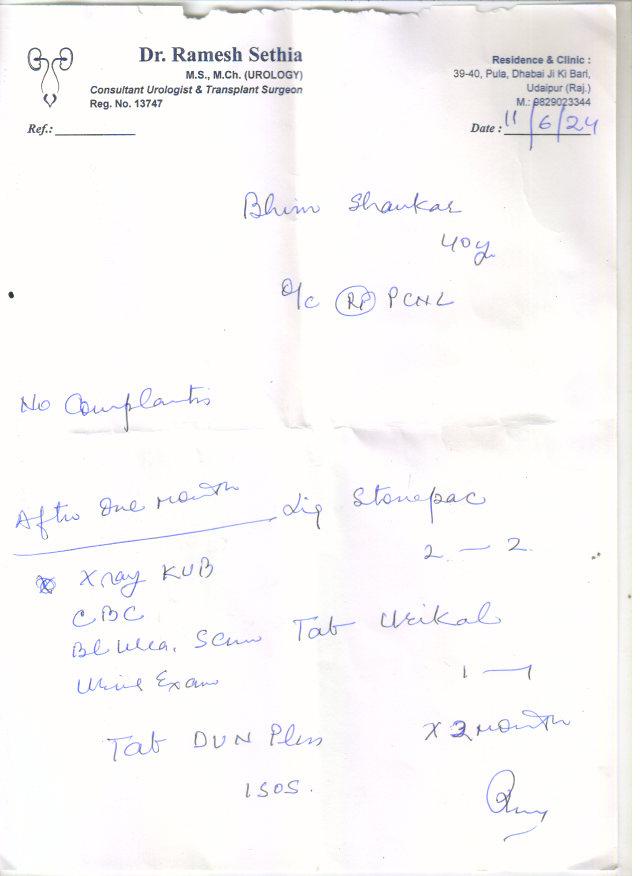 Dr. Ramesh Sethia
M.S., M.Ch. (UROLOGY)
Consultant Urologist & Transplant Surgeon
Reg. No. 13747
Ref.:
Residence & Clinic :
39-40, Pula, Dhabai Ji Ki Bari,
Udaipur (Raj.)
M.: 9829023344
Date : 11/6/24
Bhim Shankar
40y
O/C PCNL
No Complaints
After One Month
X ray KUB
CBC
Bl Urea, S Creat
Urine Exam
Liq Stonepac
2 — 2
Tab Urikal
1 — 1
Tab DUN Plus
1 SOS.
month